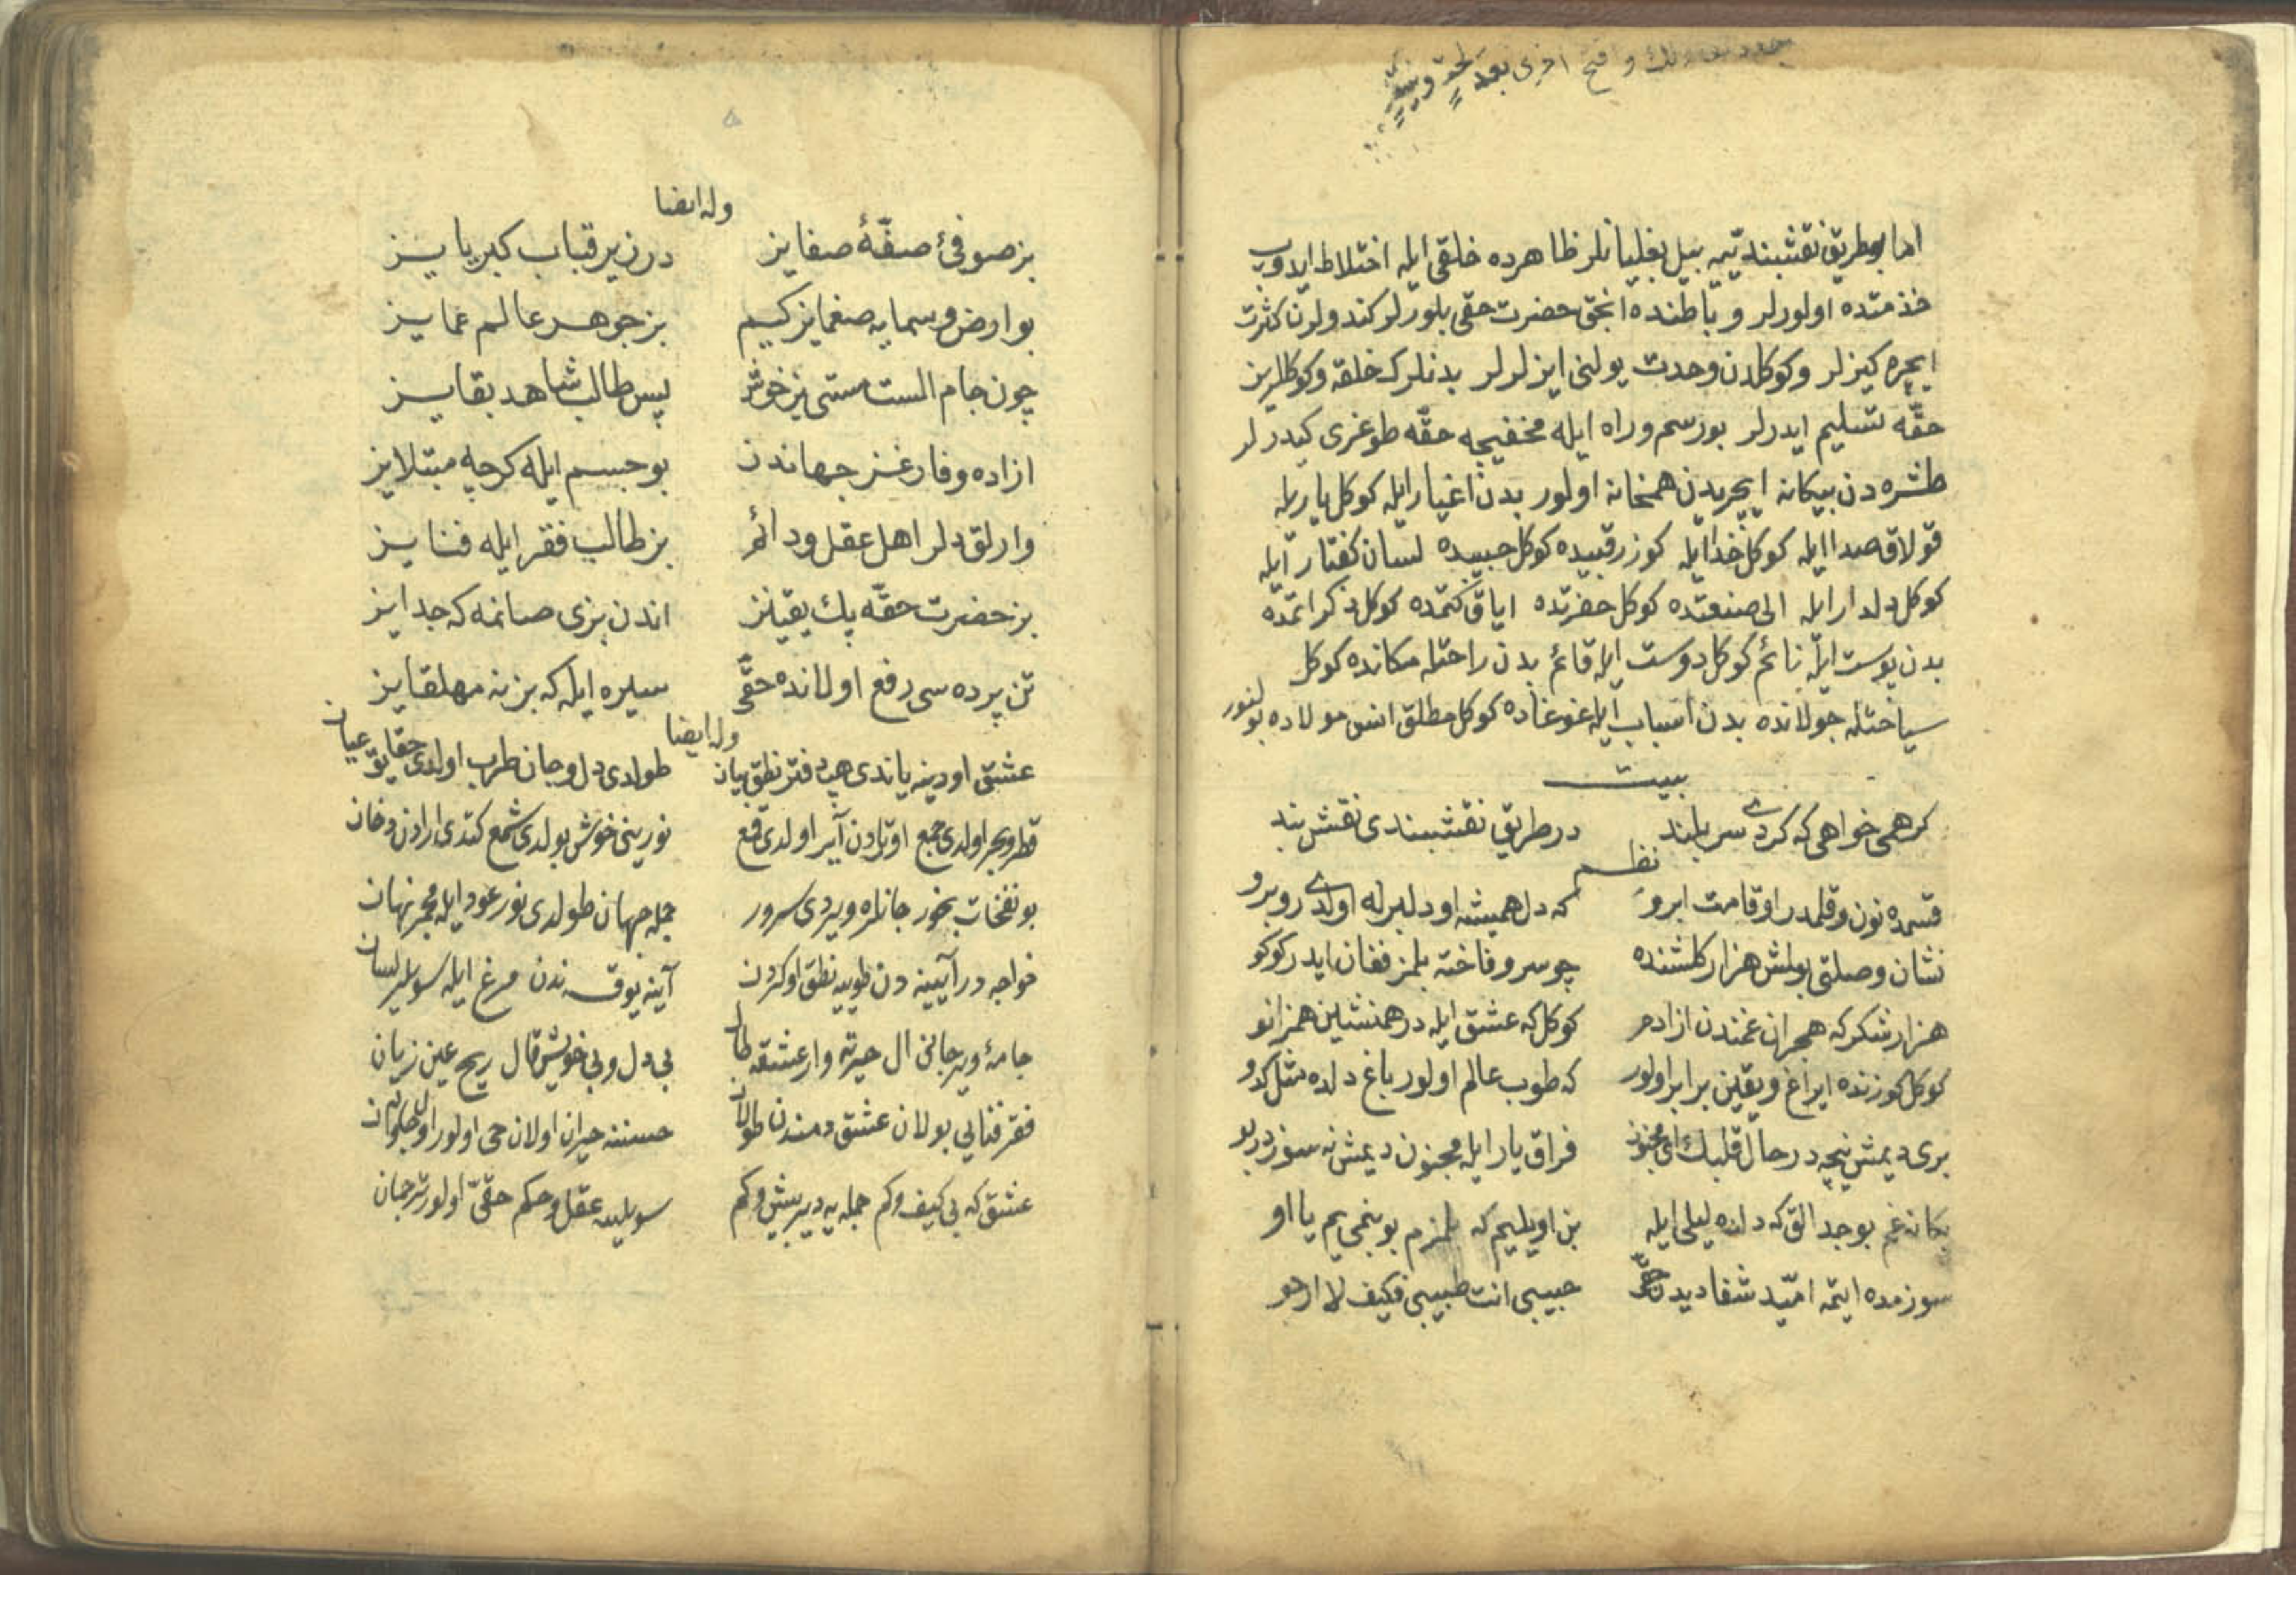 واقع اخرى بعد
اما بو طريق نقشبنديّيه بيل بغليانلر ظاهرده خلقى ايله اختلاط ايدوب
خذمتده اولورلر و باطنده انجق حضرت حقى بلورلر كندولرن كثرت
ايچره كيزلر و كوكلدن وحدت يولنى ايزلرلر بدنلرك خلقه و كوكللرين
حقّه تسليم ايدرلر بو رسم و راه ايله مخفيجه حقّه طوغرى كيدرلر
طشره دن بيكانه ايچريدن همخانه اولور بدن اغيار ايله كوكل يار ايله
قولاق صدا ايله كوكل خدا ايله كوز رقيبده كوكل حبيبده لسان كفتار ايله
كوكل دلدار ايله الى صنعتده كوكل حضرتده اياق كتمده كوكل ذكر اتمده
بدن پوست ايله نائم كوكل دوست ايله قائم بدن راحتله مكانده كوكل
سياحتله جولانده بدن اسباب ايله غوغاده كوكل مطلق انس مولاده بولنور
بيت
كر همى خواهى كه كردى سر بلند در طريق نقشبندى نقش بند
نظم
قسمده نون و قلمدر او قامت ابرو كه دل هميشه او دلبرله اولدى روبرو
نشان وصلتى بولمش هزار كلشنده چو سرو فاخته بلمز فغان ايدر كوكو
هزار شكر كه هجران غمندن ازادم كوكل كه عشق ايله در همنشين همزانو
كوكل كوزنده ايراغ و يقين برابر اولور كه طوب عالم اولور باغ دلده مثل كدو
برى ديمش نيجه در حال قلبك اى مجنون فراق يار ايله مجنون ديمش نه سوزدر بو
بكا نه غم بو جدالق كه دلده ليلى ايله بن اويليم كه بلمزم بو بنمى يم يا او
سوزمده ايتمه اميّد شفا ديدن حقّى حبيبى انت طبيبى فكيف لا ارجو
وله ايضا
بز صوفئ صفّهٔ صفايز در زير قباب كبريايز
بو ارض و سمايه صغمايز كيم بز جوهر عالم عمايز
چون جام الست مستى يز خوش پس طالب شاهد بقايز
ازاده و فارغز جهاندن بو جسم ايله كرچه مبتلايز
وارلق دلر اهل عقل و دائم بز طالب فقر ايله فنايز
بز حضرت حقّه پك يقينز اندن بزى صانمه كه جدايز
تن پرده سى رفع اولانده حقّى سيره ايله كه بز نه مهلقايز
وله ايضا
عشق اودينه ياندى هپ دفتر نطق بيان طولدى دل و جان طرب اولدى حقايق عيان
قطر و بحر اولدى جمع اورتادن آير اولدى قمع نورينى خوش بولدى شمع كتدى ارادن دخان
بو نفخات بخور جانلره ويردى سرور جمله جهان طولدى نور عود ايله مجمر نهان
خواجه در آيينه دن طوييه نطق اوكردن آينه يوق ندن مرغ ايله سويلر لسان
جامهٔ وير جانى ال حيرته وار عشقه طال بى دل و بى خويش قال ربح عين زيان
فقر فنايى بولان عشق دمندن طولان حسننه حيران اولان حى اولور اول جاودان
عشق كه بى كيف و كم جمله يه دير بيش و كم سويليه عقل و حكم حقّى اولور ترجمان